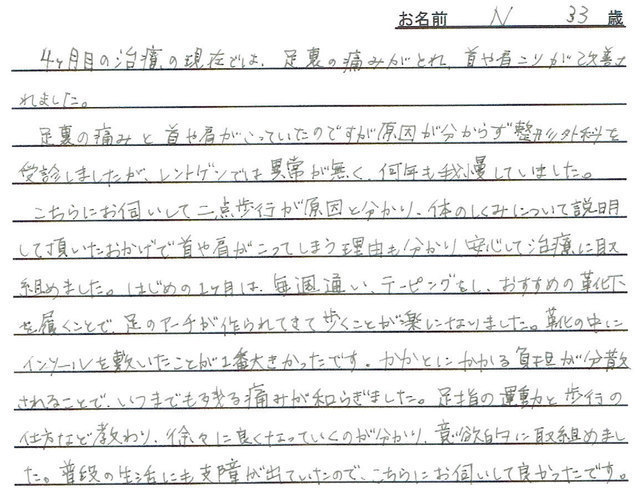 お名前 N 33 歳
4ヶ月目の治療の現在では、足裏の痛みがとれ、首や肩こりが改善さ
れました。
足裏の痛みと首や肩がこっていたのですが原因が分からず整形外科を
受診しましたが、レントゲンでは異常が無く、何年も我慢していました。
こちらにお伺いして二点歩行が原因と分かり、体のしくみについて説明
して頂いたおかげで首や肩がこってしまう理由も分かり、安心して治療に取
組めました。はじめの1ヶ月は、毎週通い、テーピングをし、おすすめの靴下
を履くことで、足のアーチが作られてきて歩くことが楽になりました。靴の中に
インソールを敷いたことが1番大きかったです。かかとにかかる負担が分散
されることで、いつまでも残る痛みが和らぎました。足指の運動と歩行の
仕方など教わり、徐々に良くなっていくのが分かり、意欲的に取組めまし
た。普段の生活にも支障が出ていたので、こちらにお伺いして良かったです。